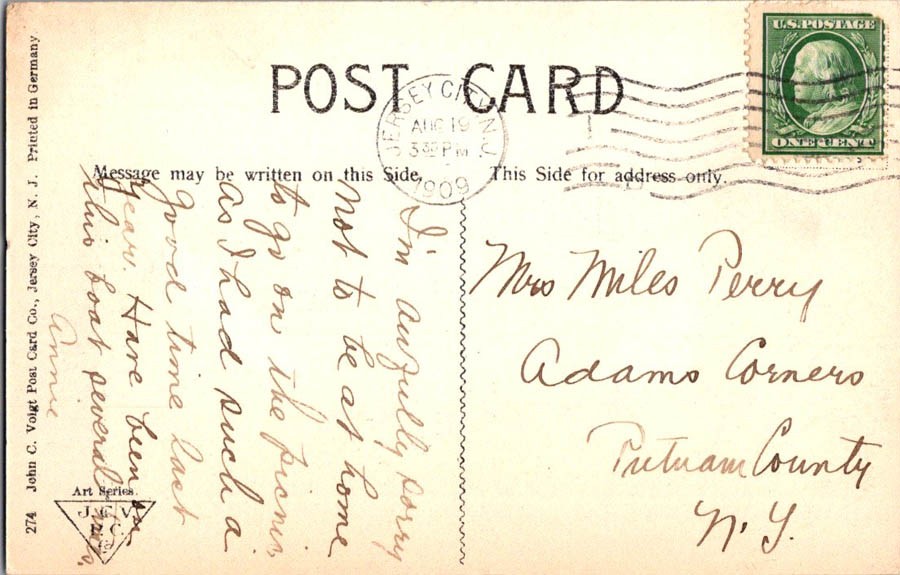 POST CARD
U.S. POSTAGE
ONE CENT
JERSEY CITY, N.J.
AUG 19
3 30 PM
1909
Message may be written on this Side,
This Side for address only.
I'm awfully sorry
not to be at home
to go on the picnic
as I had such a
good time last
year. Have been on
this boat several
Annie
Mrs Miles Perry
Adams Corners
Putnam County
N.Y.
274 John C. Voigt Post Card Co., Jersey City, N. J. Printed in Germany
Art Series.
J. C. V.
P. C.